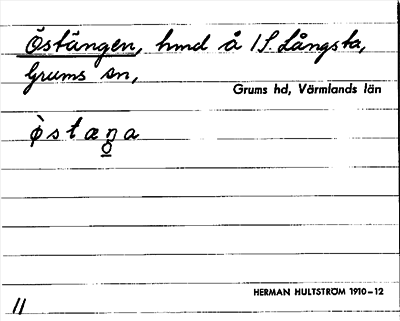 Östängen, hmd å 1 S. Långsta,
Grums sn,
Grums hd, Värmlands län
ø̀stæŋa
HERMAN HULTSTRÖM 1910–12
11